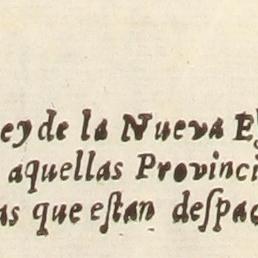 ey de la Nueva Eſ
aquellas Provinci
as que eſtan deſpac